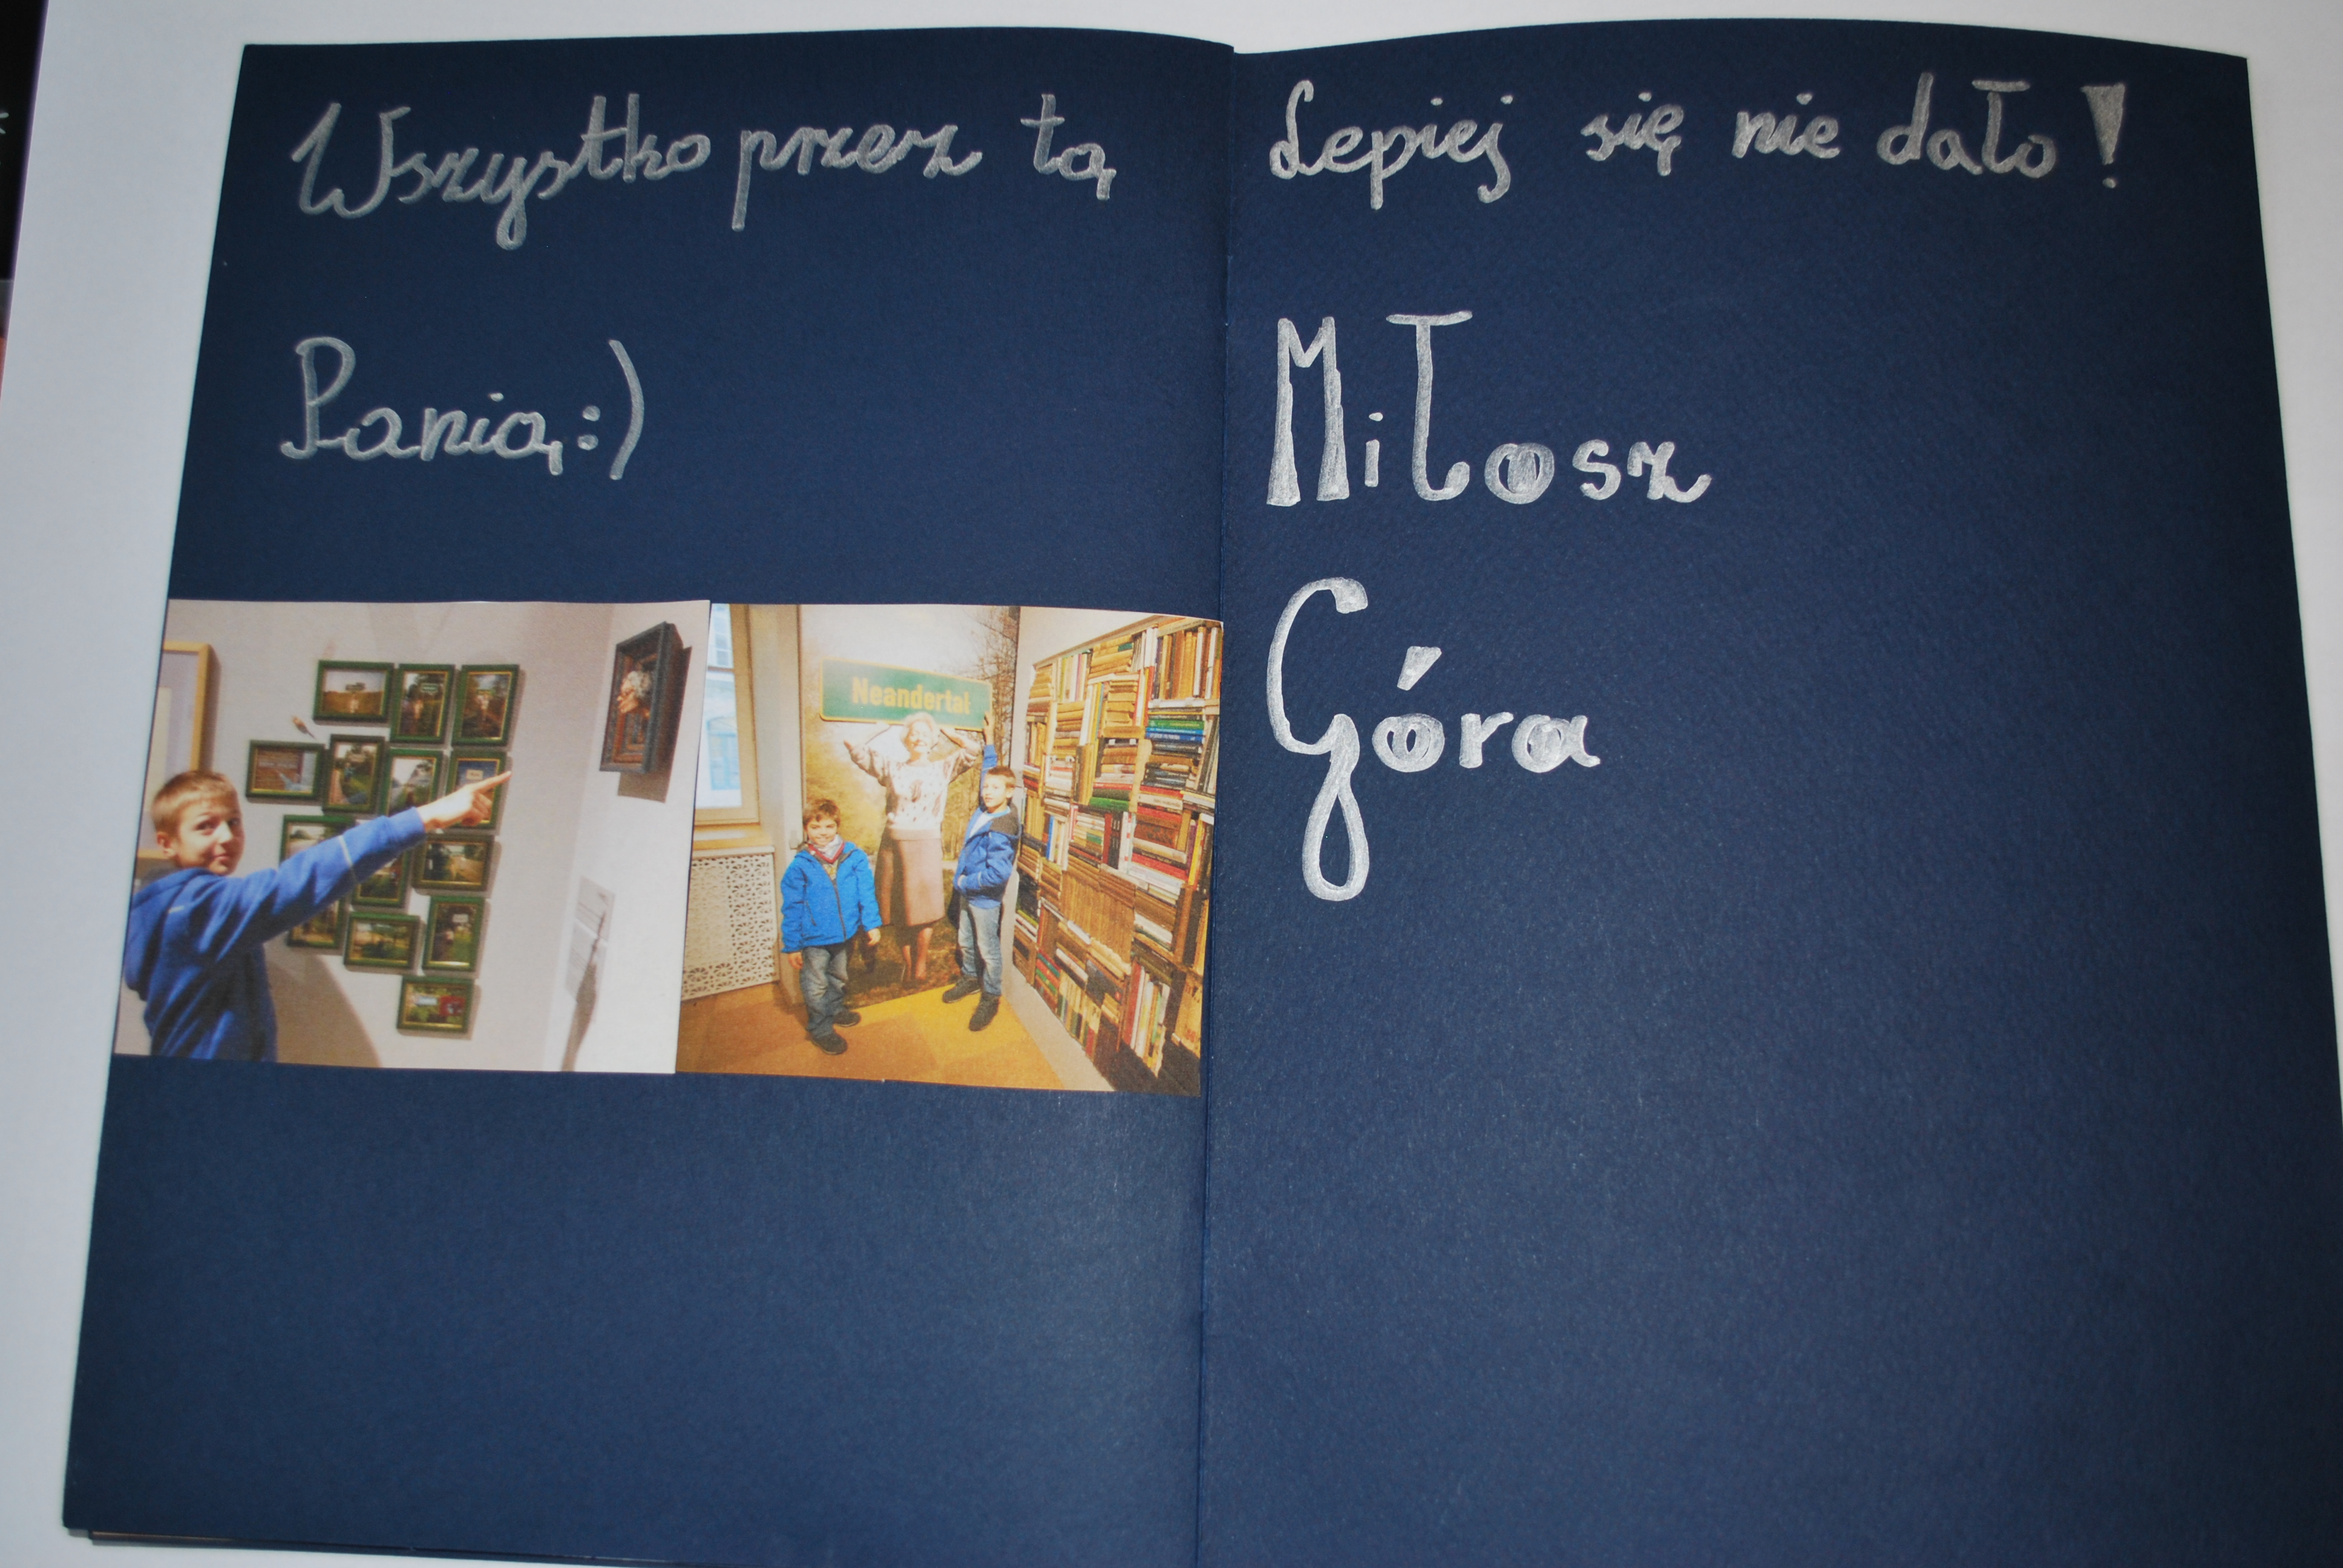 Wszystko przez tą
Panią :)
Neandertal
Lepiej się nie dało!
Miłosz
Góra